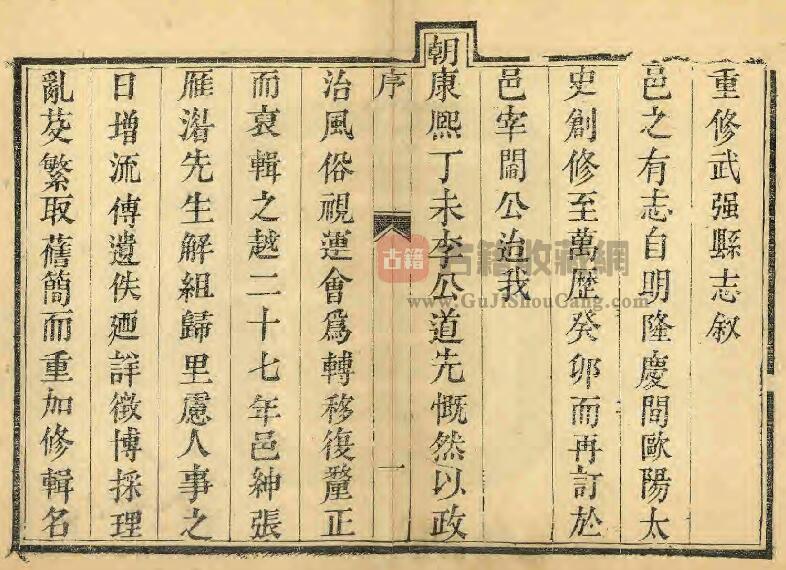 重修武强縣志叙
邑之有志自明隆慶間歐陽太
史創修至萬歷癸卯而再訂於
邑宰閻公迨我
朝康熙丁未李公道先慨然以政
序 一
治風俗視運會爲轉移復釐正
而裒輯之越二十七年邑紳張
雁湣先生解組歸里慮人事之
日增流傳遺佚廼詳徵博採理
亂芟繁取舊簡而重加修輯名
古籍
古籍收藏網
www.GuJiShouCang.com